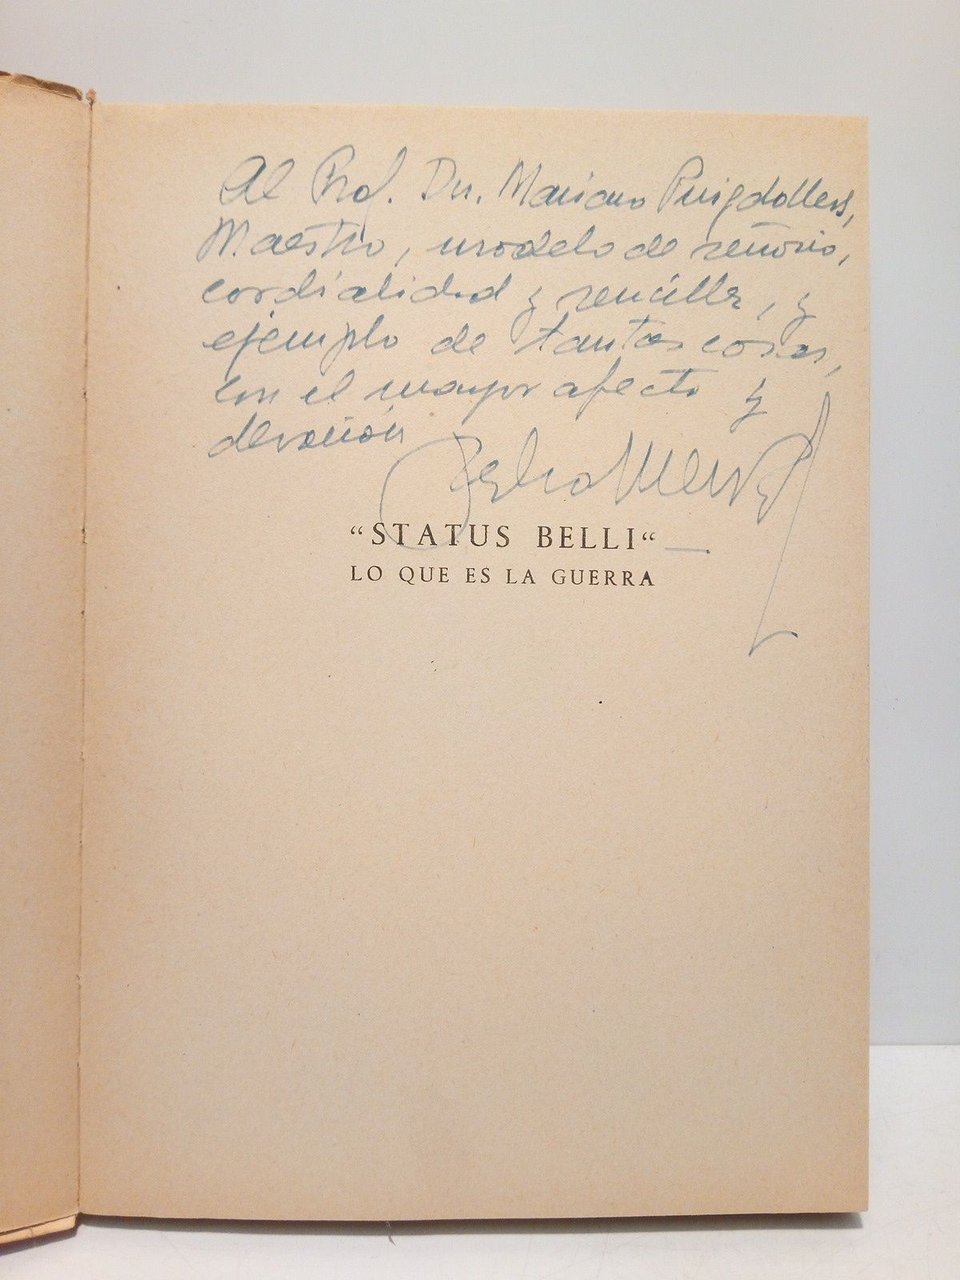 Al Prof. Dr. Mariano Puigdollers,
Maestro, modelo de señorio,
cordialidad y sencillez, y
ejemplo de tantas cosas,
con el mayor afecto y
devoción
Pedro
"STATUS BELLI"
LO QUE ES LA GUERRA